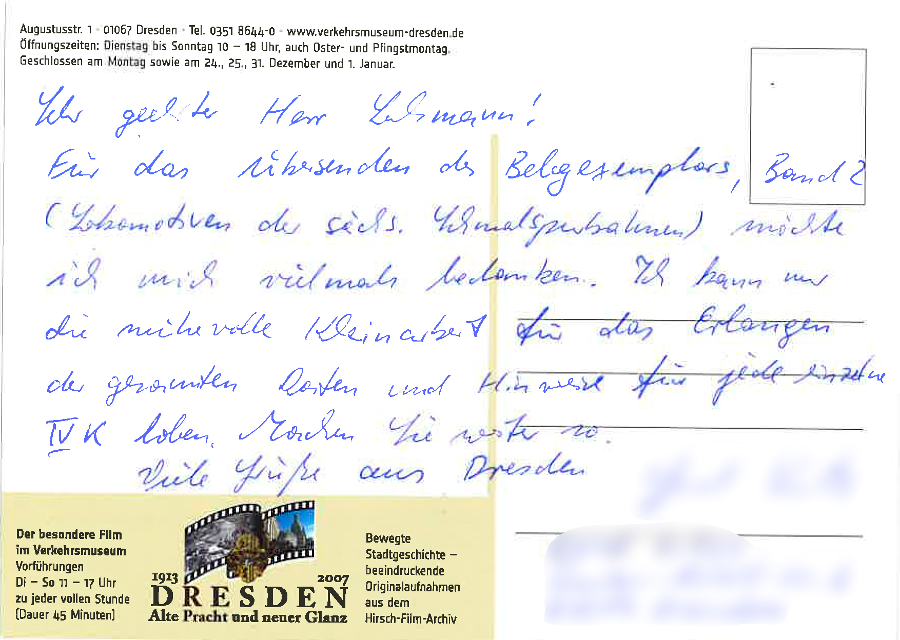 Augustusstr. 1 · 01067 Dresden · Tel. 0351 8644-0 · www.verkehrsmuseum-dresden.de
Öffnungszeiten: Dienstag bis Sonntag 10 – 18 Uhr, auch Oster- und Pfingstmontag.
Geschlossen am Montag sowie am 24., 25., 31. Dezember und 1. Januar.
Sehr geehrter Herr !
Für das Übersenden des Belegexemplars, Band 2
(Lokomotiven der sächs. Schmalspurbahnen) möchte
ich mich vielmals bedanken. Ich kann nur
die mühevolle Kleinarbeit für das Erlangen
der gesamten Daten und Hinweise für jede einzelne
IV K loben. Machen Sie weiter so.
Viele Grüße aus Dresden
Der besondere Film
im Verkehrsmuseum
Vorführungen
Di – So 11 – 17 Uhr
zu jeder vollen Stunde
(Dauer 45 Minuten)
1913 2007
DRESDEN
Alte Pracht und neuer Glanz
Bewegte
Stadtgeschichte –
beeindruckende
Originalaufnahmen
aus dem
Hirsch-Film-Archiv